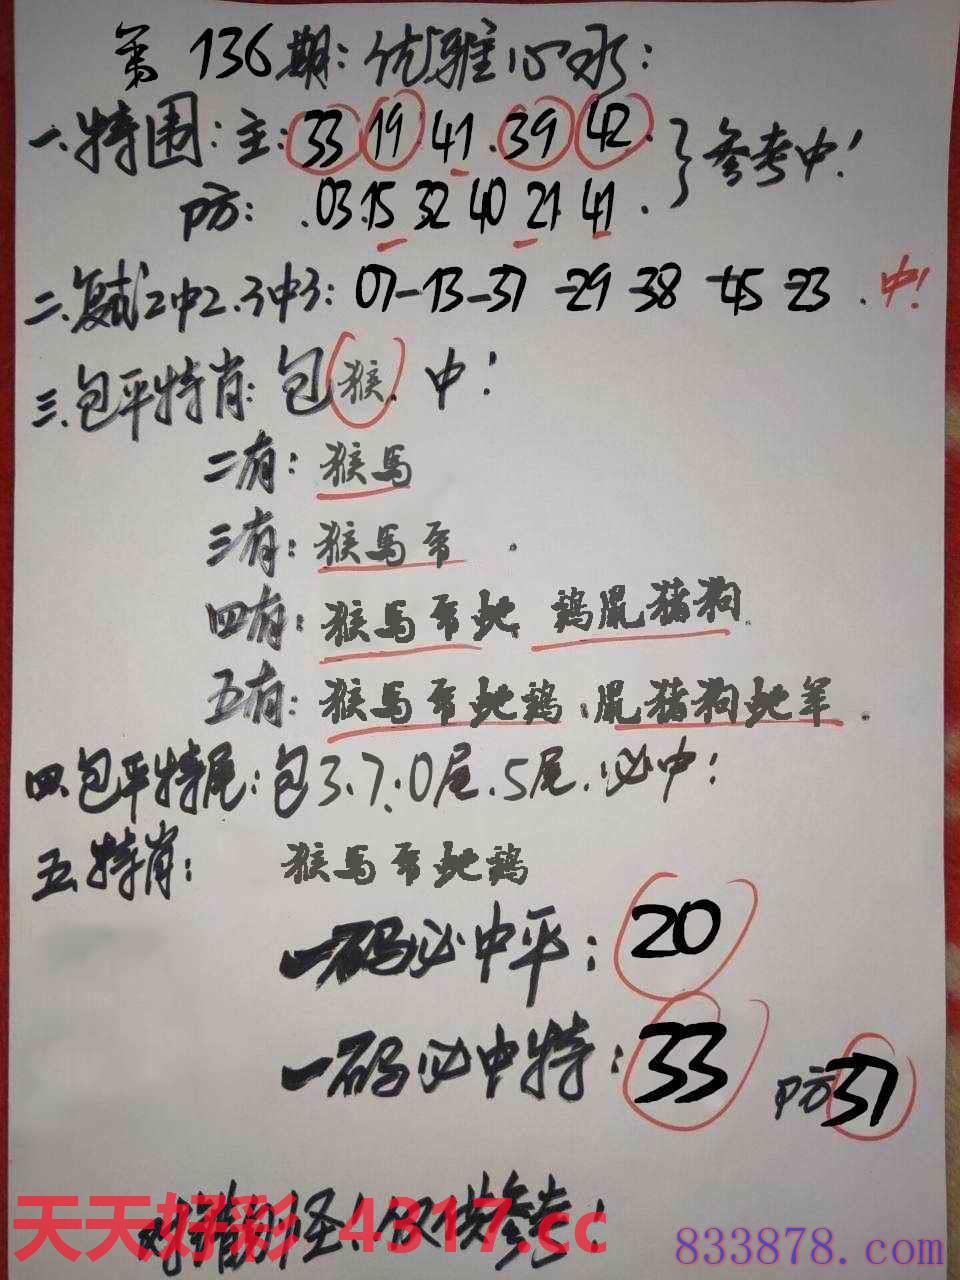 第136期:优雅心水:
一.特围:主:33 19 41.39 42.}参考中!
防:.03.15 32 40 21 41.
二.复试2中2.3中3:07-13-37-29-38-45-23.中!
三.包平特肖:包猴.中!
二有:猴马
三有:猴马帝.
四有:猴马帝蛇 鸡鼠猪狗.
五有:猴马帝蛇鸡.鼠猪狗蛇羊.
四.包平特尾:包3.7.0尾.5尾.必中!
五.特肖:猴马帝蛇鸡
一码必中平:20
一码必中特:33 防37
对错别怪!仅供参考!
天天好彩 4317.cc
833878.com